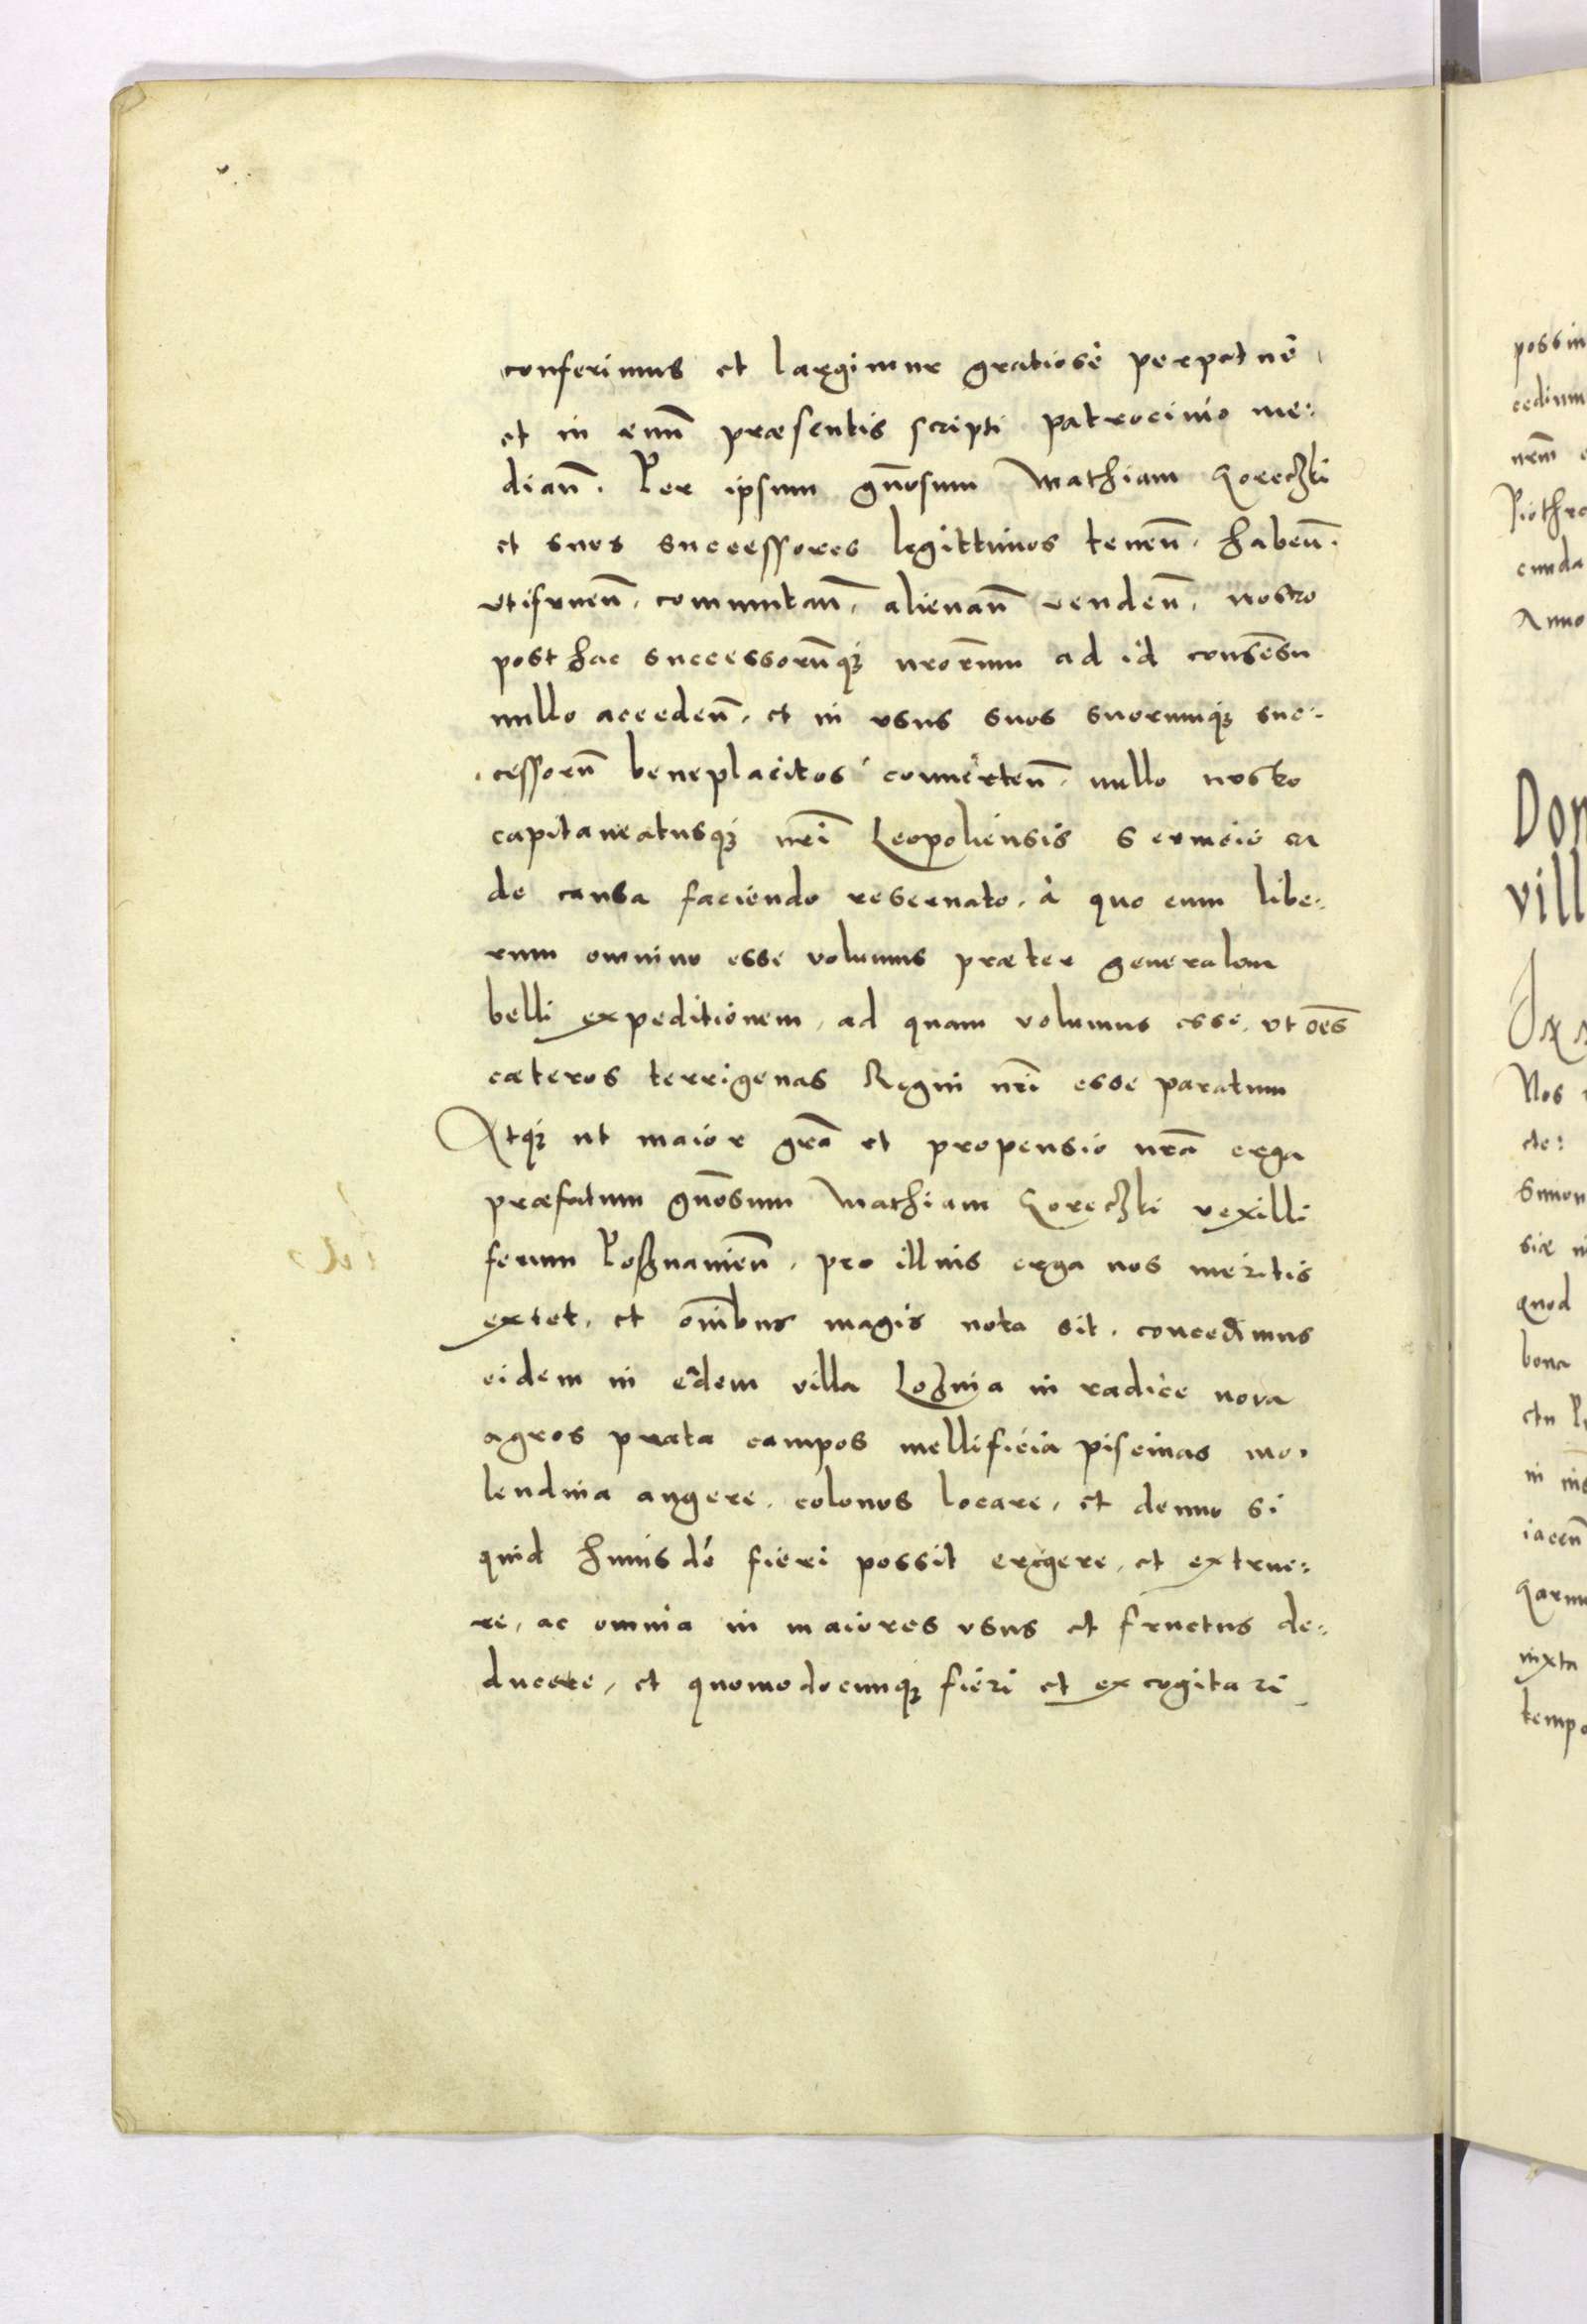 conferimus et largimur gratiosè perpetuè,
et in æuū præsentis scripti patrocinio me:
dian̄. Per ipsum gn̄osum Mathiam Goreczki
et suos successores legittimos tenen̄. haben̄.
vtifruen̄. commutan̄. alienan̄ venden̄. nostro
post hac successorūq̨ nrōrum ad id consēsu
nullo acceden̄. et in vsus suos suorumq̨ suc:
cessorū beneplacitos conuerten̄. nullo nostro
capitaneatusq̨ nrī Leopoliensis seruicio ea
de causa faciendo reseruato. à quo eum libe:
rum omnino esse volumus præter generalem
belli expeditionem, ad quam volumus esse, vt oēs
cæteros terrigenas Regni nrī esse paratum
Atq̨ ut maior grā et propensio nrā erga
præfatum gn̄osum Mathiam Goreczki vexilli
ferum Posznanien̄. pro illius erga nos meritis
extet, et oīnbus magis nota sit. concedimus
eidem in eādem villa Lozina in radice nova
agros prata campos mellificia piscinas mo:
lendina augere, colonos locare, et denuo si
quid huius dē fieri possit erigere, et extrue:
re, ac omnia in maiores vsus et fructus de:
ducere, et quomodocumq̨ fieri et excogitari
possin
cedimu
nrm̄
Piothr
cunda
Anno
Don
vill
Nos
cte:
Simon
siæ
quod
bona
ctu
in
iacen̄
iuxta
tempo